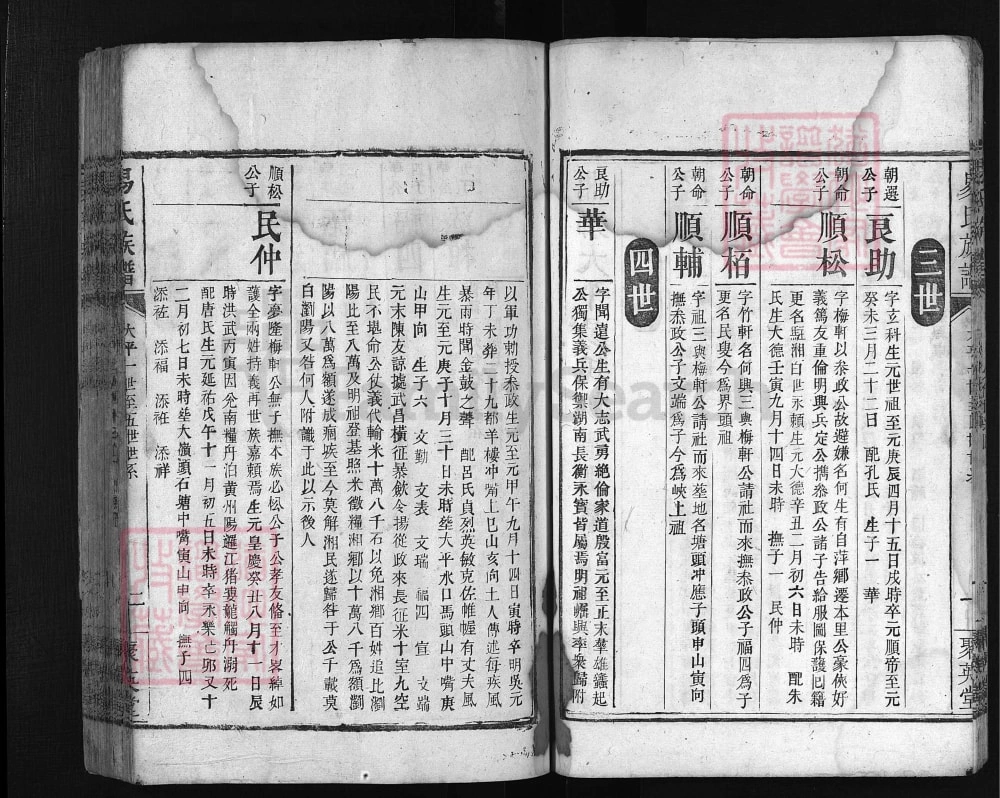 三世
朝選公子
良助
字玄科生元世祖至元庚辰四月十五日戌時卒元順帝至元
癸未三月二十二日 配孔氏 生子一 華
朝命公子
順松
字梅軒以叅政公故避嫌名何生有自萍鄉遷本里公豪俠好
義篤友重倫明興兵定公攜叅政公諸子告給服圖保護囘籍
更名駈湘白世永賴生元大德辛丑二月初六日未時 配朱
氏生大德壬寅九月十四日未時 撫子一 民仲
朝命公子
順栢
字竹軒名何興三與梅軒公請社而來撫叅政公子福四爲子
更名民叟今爲界頭祖
朝命公子
順輔
字祖三與梅軒公請社而來塟地名塘頭冲應子頭申山寅向
撫叅政公子文端爲子今爲峽上祖
四世
良助公子
華
字聞遠公生有大志武勇絶倫家道殷富元至正末羣雄蠭起
公獨集義兵保禦湖南長衡永寶皆屬焉明祖嶇興率衆歸附
以軍功勅授叅政生元至元甲午九月十四日寅時卒明吳元
年丁未葬二十九都羊樓冲嘴上巳山亥向土人傳述每疾風
暴雨時聞金鼓之聲 配呂氏貞烈英敏克佐帷幄有丈夫風
生元至元庚子十月三十日未時塟大平水口馬頭山中嘴庚
山甲向 生子六 文勤 文表 文瑞 福四 宣 文端
元末陳友諒據武昌橫征暴歛令揚從政來長征米十室九空
民不堪命公仗義代輸米十萬八千石以免湘鄉百姓追比瀏
陽比至八萬及明祖登基照米徵糧湘鄉以十萬八千爲額瀏
陽以八萬爲額遂成痼瘼至今莫解湘民遂歸咎于公千載莫
白瀏陽又咎何人附識于此以示後人
順松公子
民仲
字夢隆梅軒公無子撫本族必松公子公孝友脩至才畧綽如
護全兩姓持義再世族嘉賴焉生元皇慶癸丑八月十一日辰
時洪武丙寅因兌南糧丹泊黃州陽邏江猪婆龍觸丹溺死
配唐氏生元延祐戊午十一月初五日未時卒永樂己卯又十
二月初七日未時塟大嶺頭石塘中嘴寅山申向 撫子四
添祐 添福 添祥
易氏族譜
太平一世至五世世系
二
聚英堂